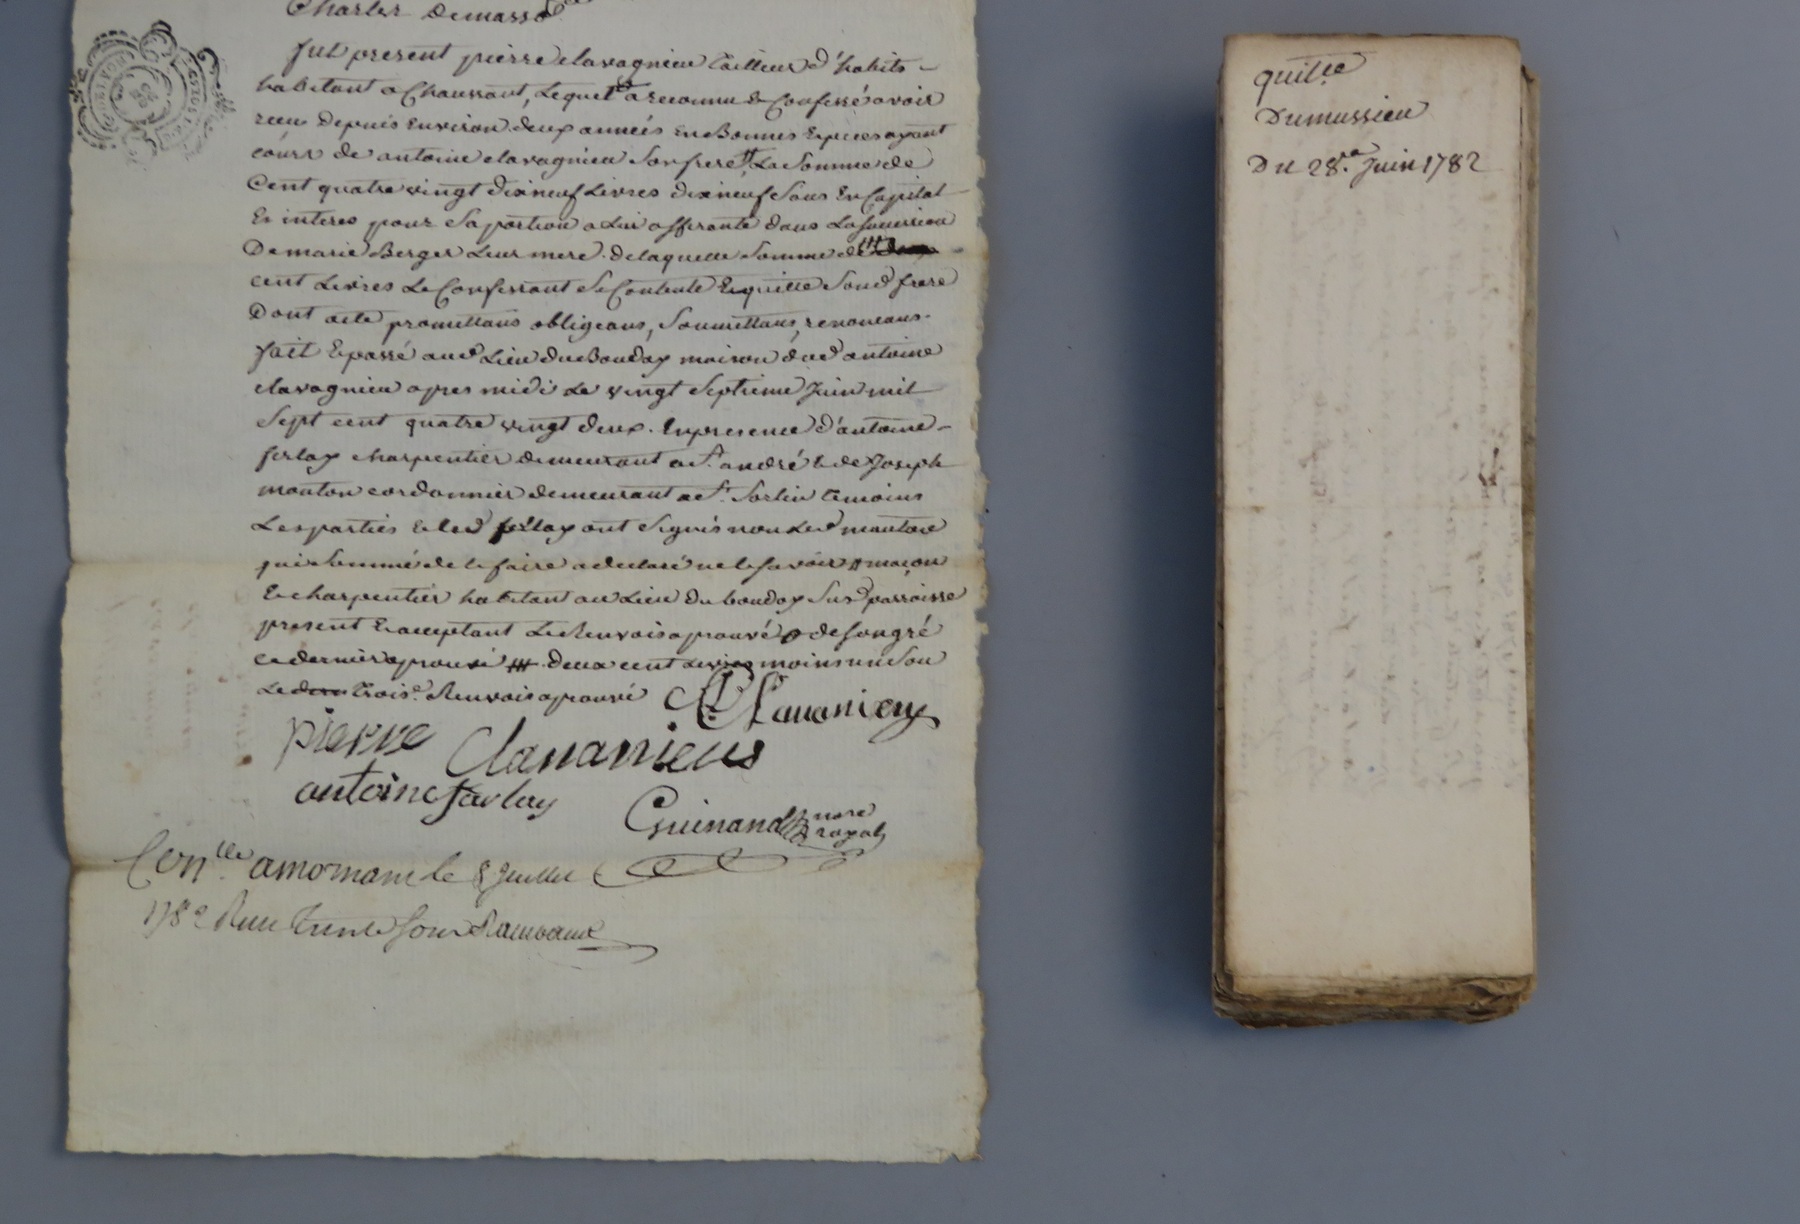 Charles Demasso
fut present pierre clavagnieu tailleur d'habits
habitant a Chaussant, Lequel a reconnu & Confessé avoir
receu depuis Environ deux années En Bonnes Especes ayant
cours de antoine clavagnieu son frere # La Somme de
Cent quatre vingt dixneuf Livres dixneuf Sous En Capital
Et interes pour sa portion a Lui afferante dans La
De marie Berger Leur mere. de laquelle Somme de ###
cent Livres Le Confessant Se Contente Equitte Sond frere
Dont acte promettans obligeans, Soumettans, renonceans.
fait Epassé aud Lieu du Bouday maison dud antoine
clavagnieu apres midi Le vingt Septieme Juin mil
Sept cent quatre vingt deux. Enpresence d'antoine
ferlay charpentier demeurant a St. andré & de Joseph
mouton cordonnier demeurant a St. Sorlin temoins
Les parties & led ferlay ont Signés non Led mouton
qui Sommé de le faire a declaré ne le Savoir # maçon
Echarpentier habitant au Lieu du bouday Susd parroisse
present Eacceptant Le Renvois aprouvé de Son gré
ce dernier aprouvé ### deux cent Livres moins un Sou
Le trois.e Renvois aprouvé
Clavanieu
pierre Clavanieus
antoine farlay
Guinand nore
royal
Con.lle a mornant le 8 Juillet
1782 Reçu trente Sous
quitce
Dumussieu
Du 28.e Juin 1782